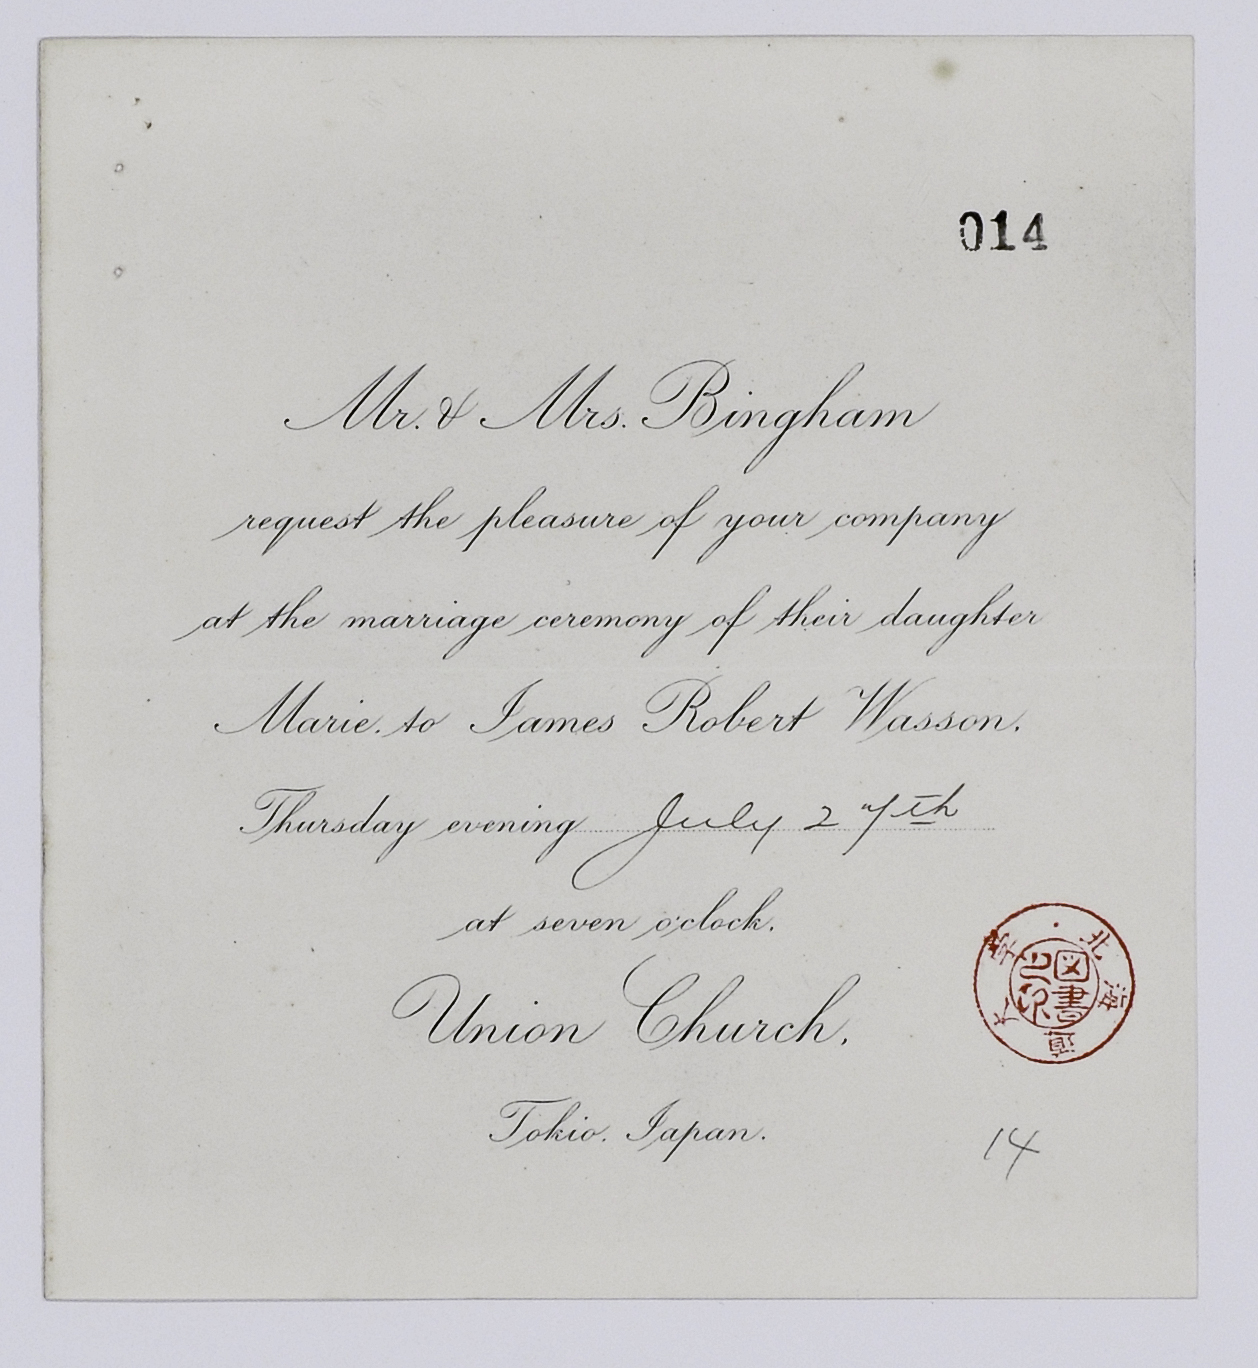 014
Mr. & Mrs. Bingham
request the pleasure of your company
at the marriage ceremony of their daughter
Marie. to James Robert Wasson.
Thursday evening July 27th
at seven o'clock.
Union Church,
Tokio. Japan.
北海道大学
図書之印
14